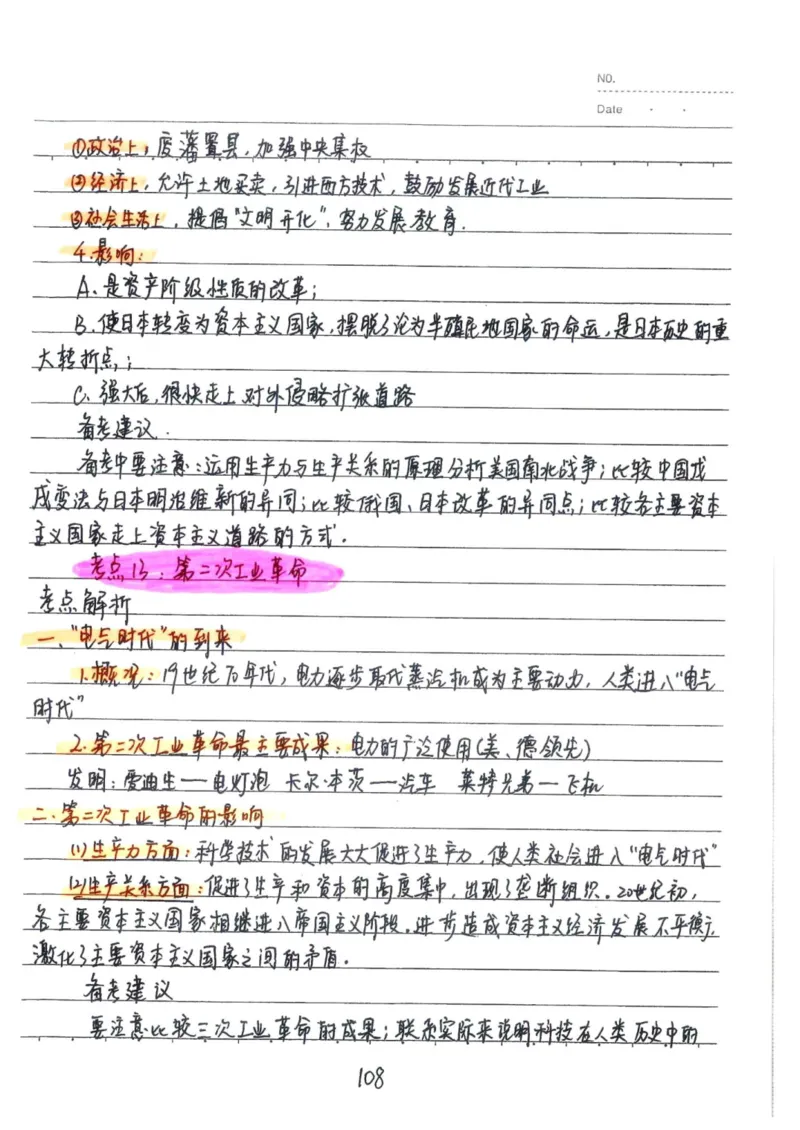 NO.
Date
①政治上,废藩置县,加强中央集权
②经济上,允许土地买卖,引进西方技术,鼓励发展近代工业
③社会生活上,提倡“文明开化”,努力发展教育.
4.影响:
A.是资产阶级性质的改革;
B.使日本转变为资本主义国家,摆脱了沦为半殖民地国家的命运,是日本历史的重
大转折点,;
C.强大后,很快走上对外侵略扩张道路
备考建议.
备考中要注意:运用生产力与生产关系的原理分析美国南北战争;比较中国戊
戌变法与日本明治维新的异同;比较俄国、日本改革的异同点;比较各主要资本
主义国家走上资本主义道路的方式.
考点13:第二次工业革命
考点解析
一、“电气时代”的到来
1.概况:19世纪70年代,电力逐步取代蒸汽机成为主要动力,人类进入“电气
时代”
2.第二次工业革命最主要成果:电力的广泛使用(美、德领先)
发明:爱迪生—电灯泡 卡尔·本茨—汽车 莱特兄弟—飞机
二.第二次工业革命的影响
(1)生产力方面:科学技术的发展大大促进了生产力,使人类社会进入“电气时代”
(2)生产关系方面:促进了生产和资本的高度集中,出现了垄断组织。20世纪初,
各主要资本主义国家相继进入帝国主义阶段。进步造成资本主义经济发展不平衡,
激化了主要资本主义国家之间的矛盾.
备考建议
要注意比较三次工业革命的成果;联系实际来说明科技在人类历史中的
108